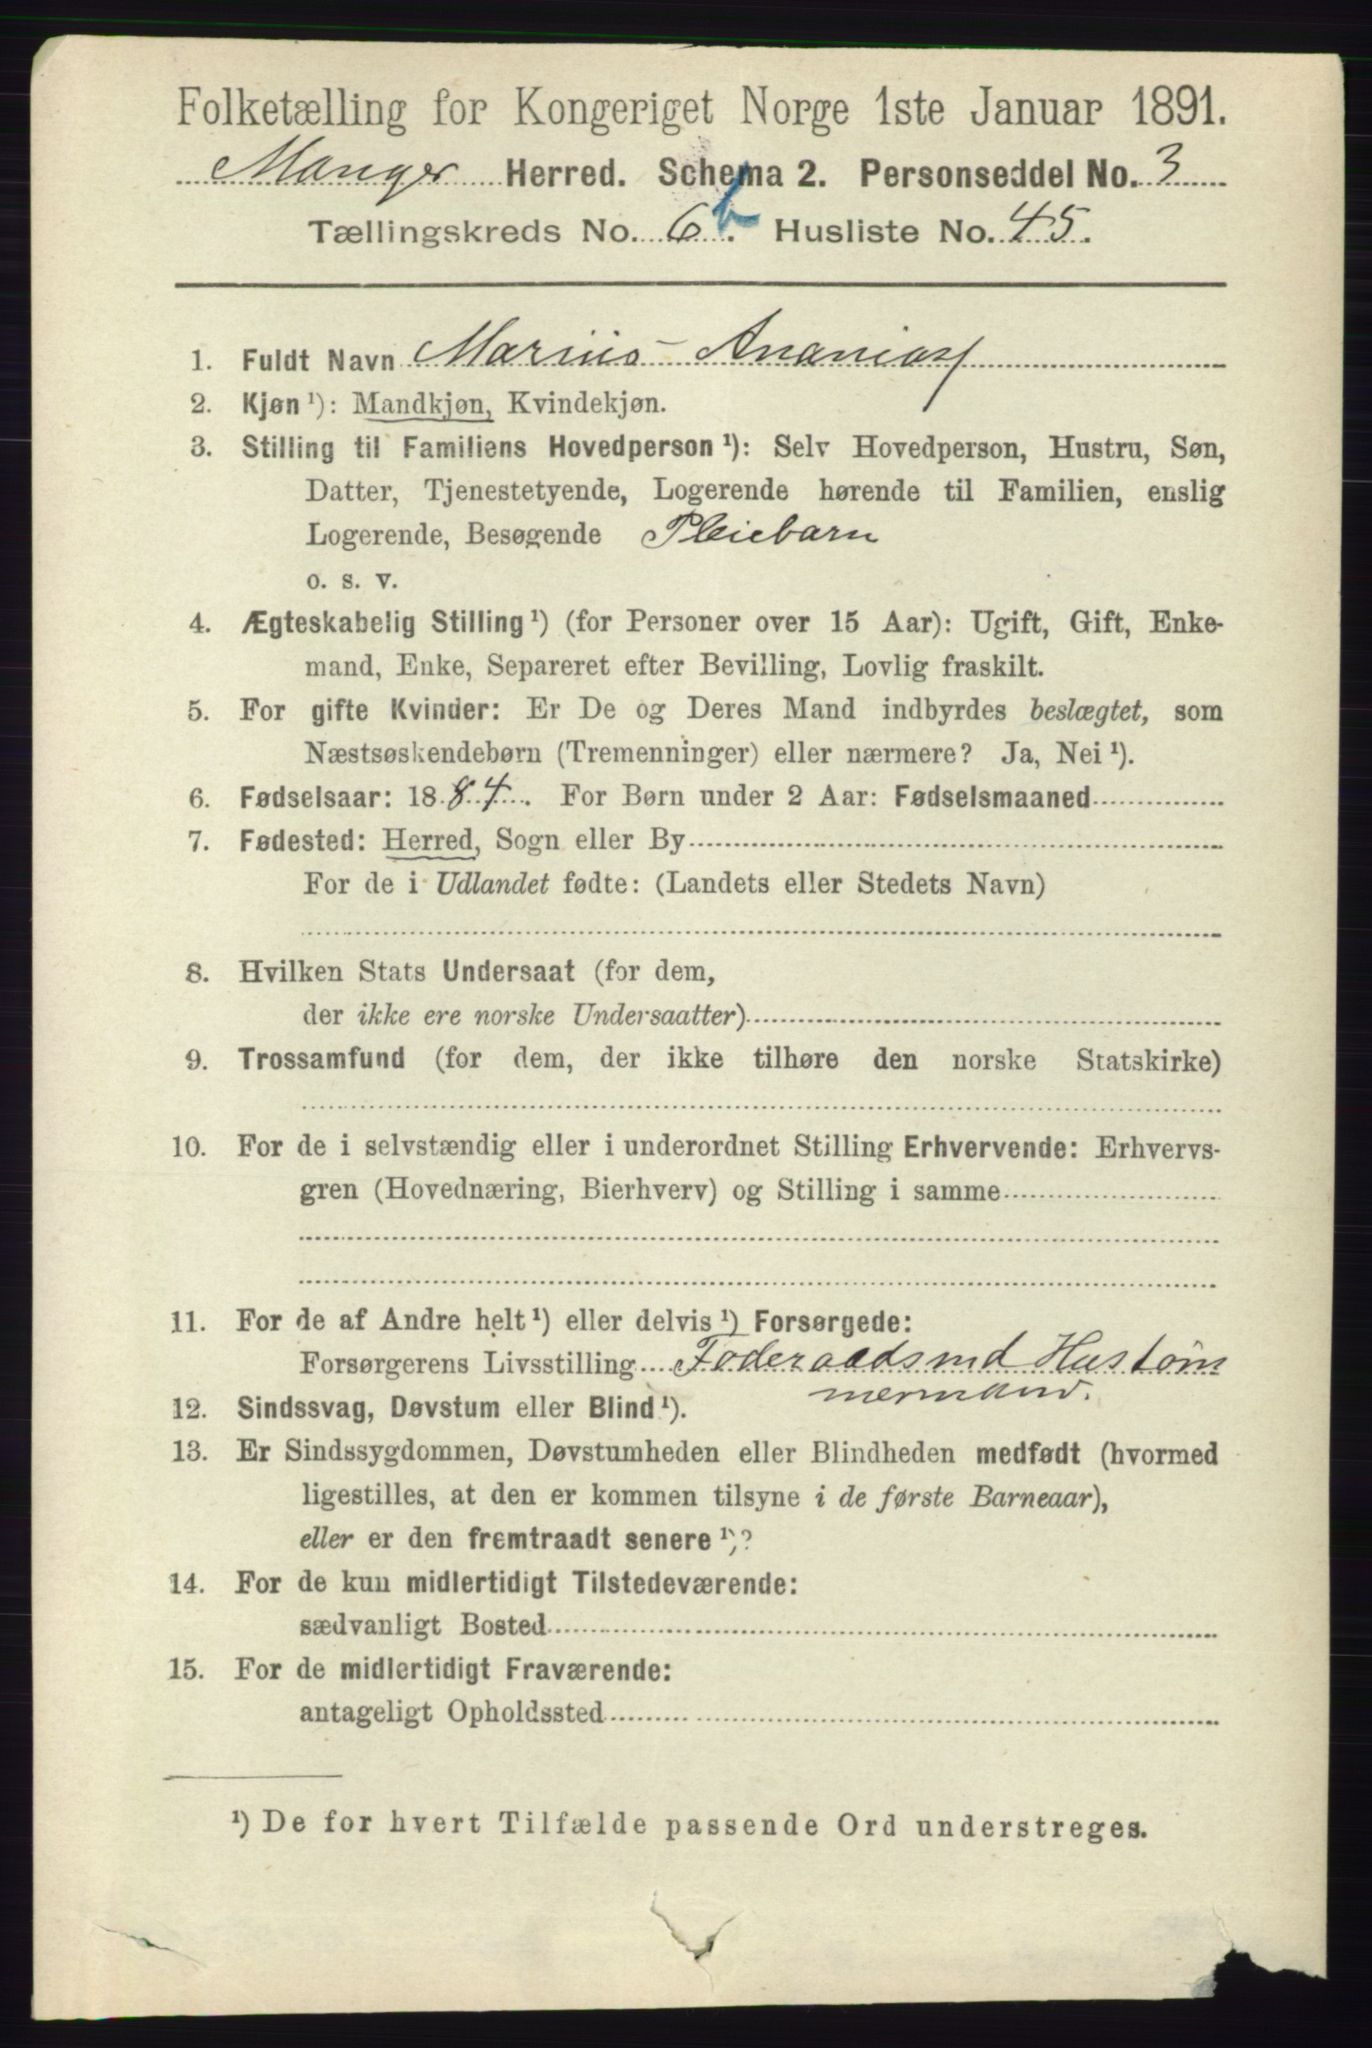 Folketælling for Kongeriget Norge 1ste Januar 1891.
Manger Herred. Schema 2. Personseddel No. 3
Tællingskreds No. 6 b. Husliste No. 45.
1. Fuldt Navn Marius Ananias
2. Kjøn ¹): Mandkjøn, Kvindekjøn.
3. Stilling til Familiens Hovedperson ¹): Selv Hovedperson, Hustru, Søn,
Datter, Tjenestetyende, Logerende hørende til Familien, enslig
Logerende, Besøgende Pleiebarn
o. s. v.
4. Ægteskabelig Stilling ¹) (for Personer over 15 Aar): Ugift, Gift, Enke-
mand, Enke, Separeret efter Bevilling, Lovlig fraskilt.
5. For gifte Kvinder: Er De og Deres Mand indbyrdes beslægtet, som
Næstsøskendebørn (Tremenninger) eller nærmere? Ja, Nei ¹).
6. Fødselsaar: 1884. For Børn under 2 Aar: Fødselsmaaned
7. Fødested: Herred, Sogn eller By
For de i Udlandet fødte: (Landets eller Stedets Navn)
8. Hvilken Stats Undersaat (for dem,
der ikke ere norske Undersaatter)
9. Trossamfund (for dem, der ikke tilhøre den norske Statskirke)
10. For de i selvstændig eller i underordnet Stilling Erhvervende: Erhvervs-
gren (Hovednæring, Bierhverv) og Stilling i samme
11. For de af Andre helt ¹) eller delvis ¹) Forsørgede:
Forsørgerens Livsstilling Foderaadsmd Hustøm
mermand.
12. Sindssvag, Døvstum eller Blind ¹).
13. Er Sindssygdommen, Døvstumheden eller Blindheden medfødt (hvormed
ligestilles, at den er kommen tilsyne i de første Barneaar),
eller er den fremtraadt senere ¹)?
14. For de kun midlertidigt Tilstedeværende:
sædvanligt Bosted
15. For de midlertidigt Fraværende:
antageligt Opholdssted
¹) De for hvert Tilfælde passende Ord understreges.